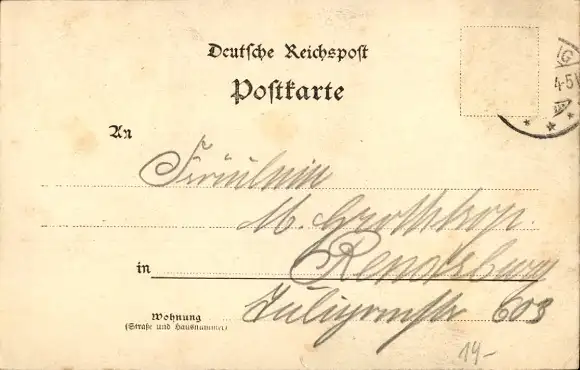 Deutsche Reichspost
Postkarte
G
4-5
An
Fräulein
M. Grothkop.
in Rendsburg
Wohnung
(Straße und Hausnummer)
603
14-